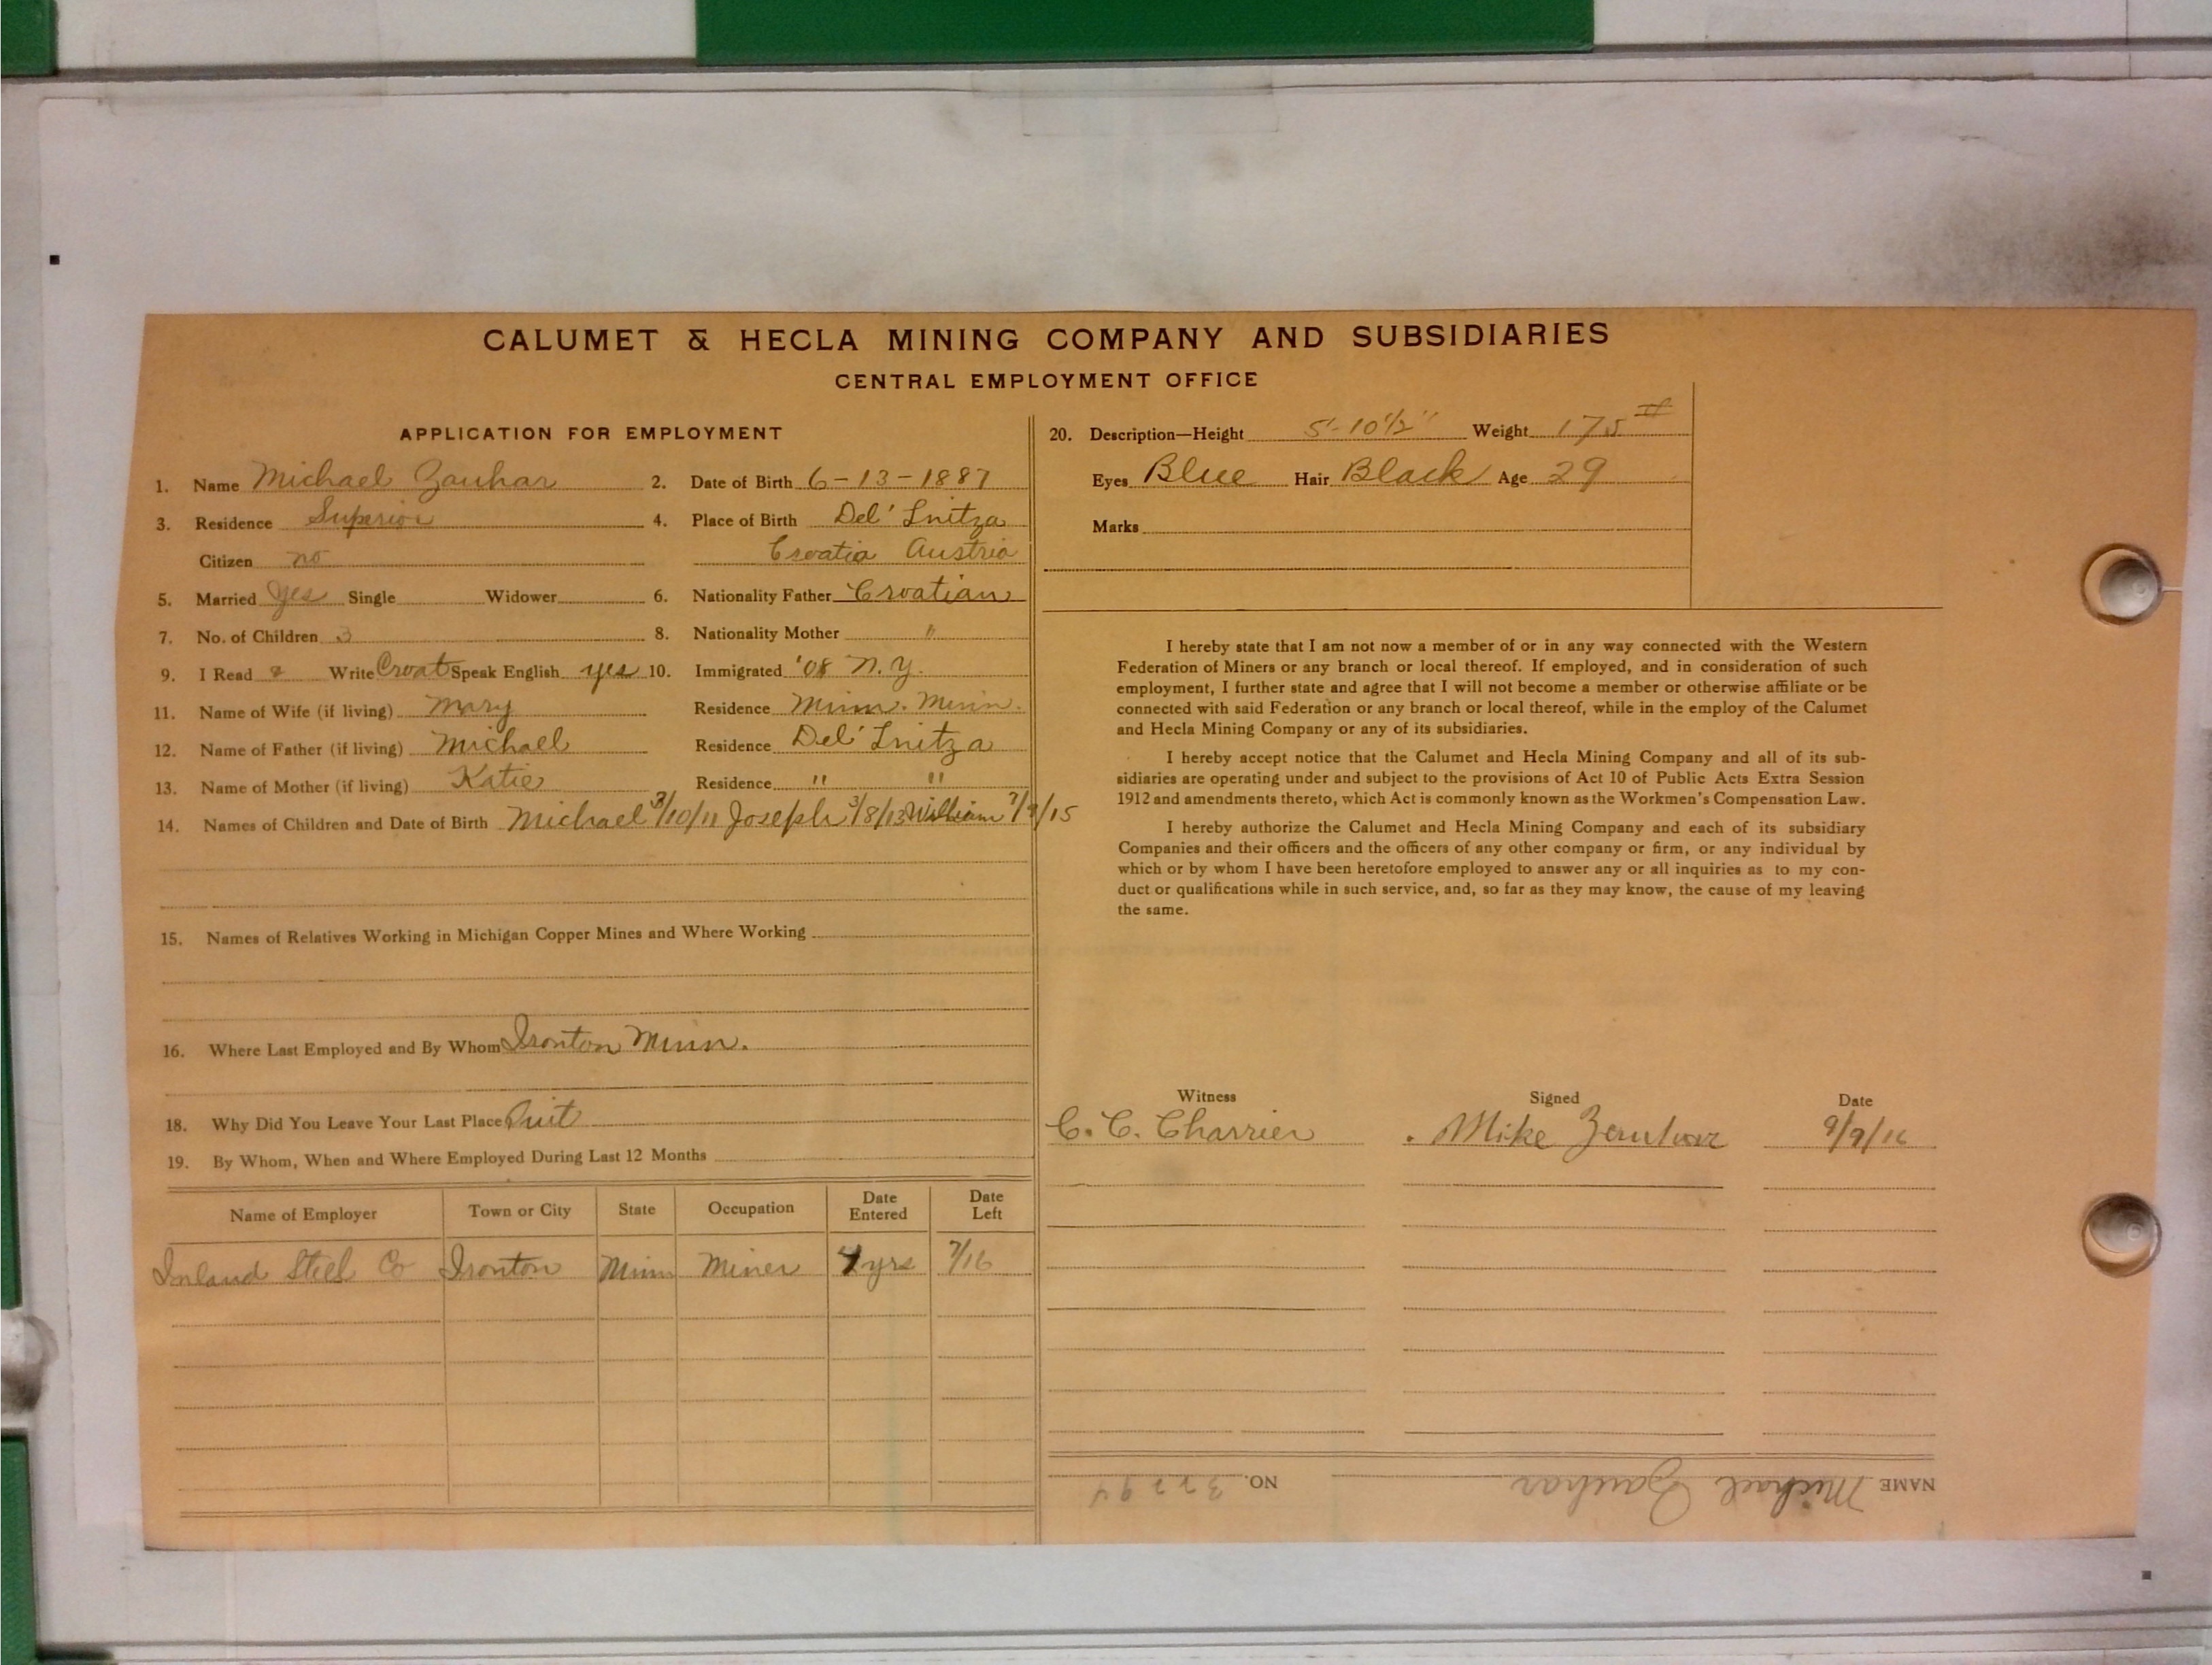 CALUMET & HECLA MINING COMPANY AND SUBSIDIARIES
CENTRAL EMPLOYMENT OFFICE
APPLICATION FOR EMPLOYMENT
1. Name Michael Zauhar 2. Date of Birth 6-13-1887
3. Residence Superior 4. Place of Birth Del' Initza
Citizen no Croatia Austria
5. Married Yes Single Widower 6. Nationality Father Croatian
7. No. of Children 3 8. Nationality Mother "
9. I Read & Write Croat Speak English yes 10. Immigrated '08 N.Y.
11. Name of Wife (if living) Mary Residence Minn. Minn.
12. Name of Father (if living) Michael Residence Del' Initza
13. Name of Mother (if living) Katie Residence " "
14. Names of Children and Date of Birth Michael 3/10/11 Joseph 3/8/13 William 7/9/15
15. Names of Relatives Working in Michigan Copper Mines and Where Working
16. Where Last Employed and By Whom Ironton Minn.
18. Why Did You Leave Your Last Place Quit
19. By Whom, When and Where Employed During Last 12 Months
Name of Employer Town or City State Occupation Date Entered Date Left
Inland Steel Co Ironton Minn Miner 4 yrs 7/16
20. Description—Height 5'-10 1/2" Weight 175 #
Eyes Blue Hair Black Age 29
Marks
I hereby state that I am not now a member of or in any way connected with the Western
Federation of Miners or any branch or local thereof. If employed, and in consideration of such
employment, I further state and agree that I will not become a member or otherwise affiliate or be
connected with said Federation or any branch or local thereof, while in the employ of the Calumet
and Hecla Mining Company or any of its subsidiaries.
I hereby accept notice that the Calumet and Hecla Mining Company and all of its sub-
sidiaries are operating under and subject to the provisions of Act 10 of Public Acts Extra Session
1912 and amendments thereto, which Act is commonly known as the Workmen's Compensation Law.
I hereby authorize the Calumet and Hecla Mining Company and each of its subsidiary
Companies and their officers and the officers of any other company or firm, or any individual by
which or by whom I have been heretofore employed to answer any or all inquiries as to my con-
duct or qualifications while in such service, and, so far as they may know, the cause of my leaving
the same.
Witness Signed Date
C. C. Charrier Mike Zeruhar 9/9/16
NAME Michael Zauhar NO. 32294